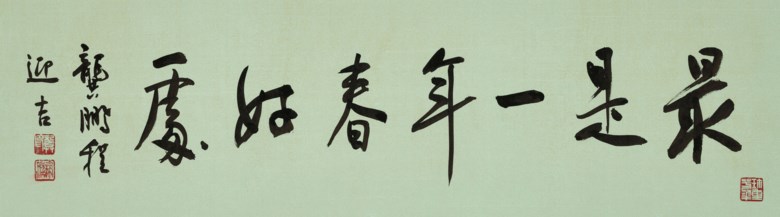 最是一年春好處
龔鵬程
迎吉